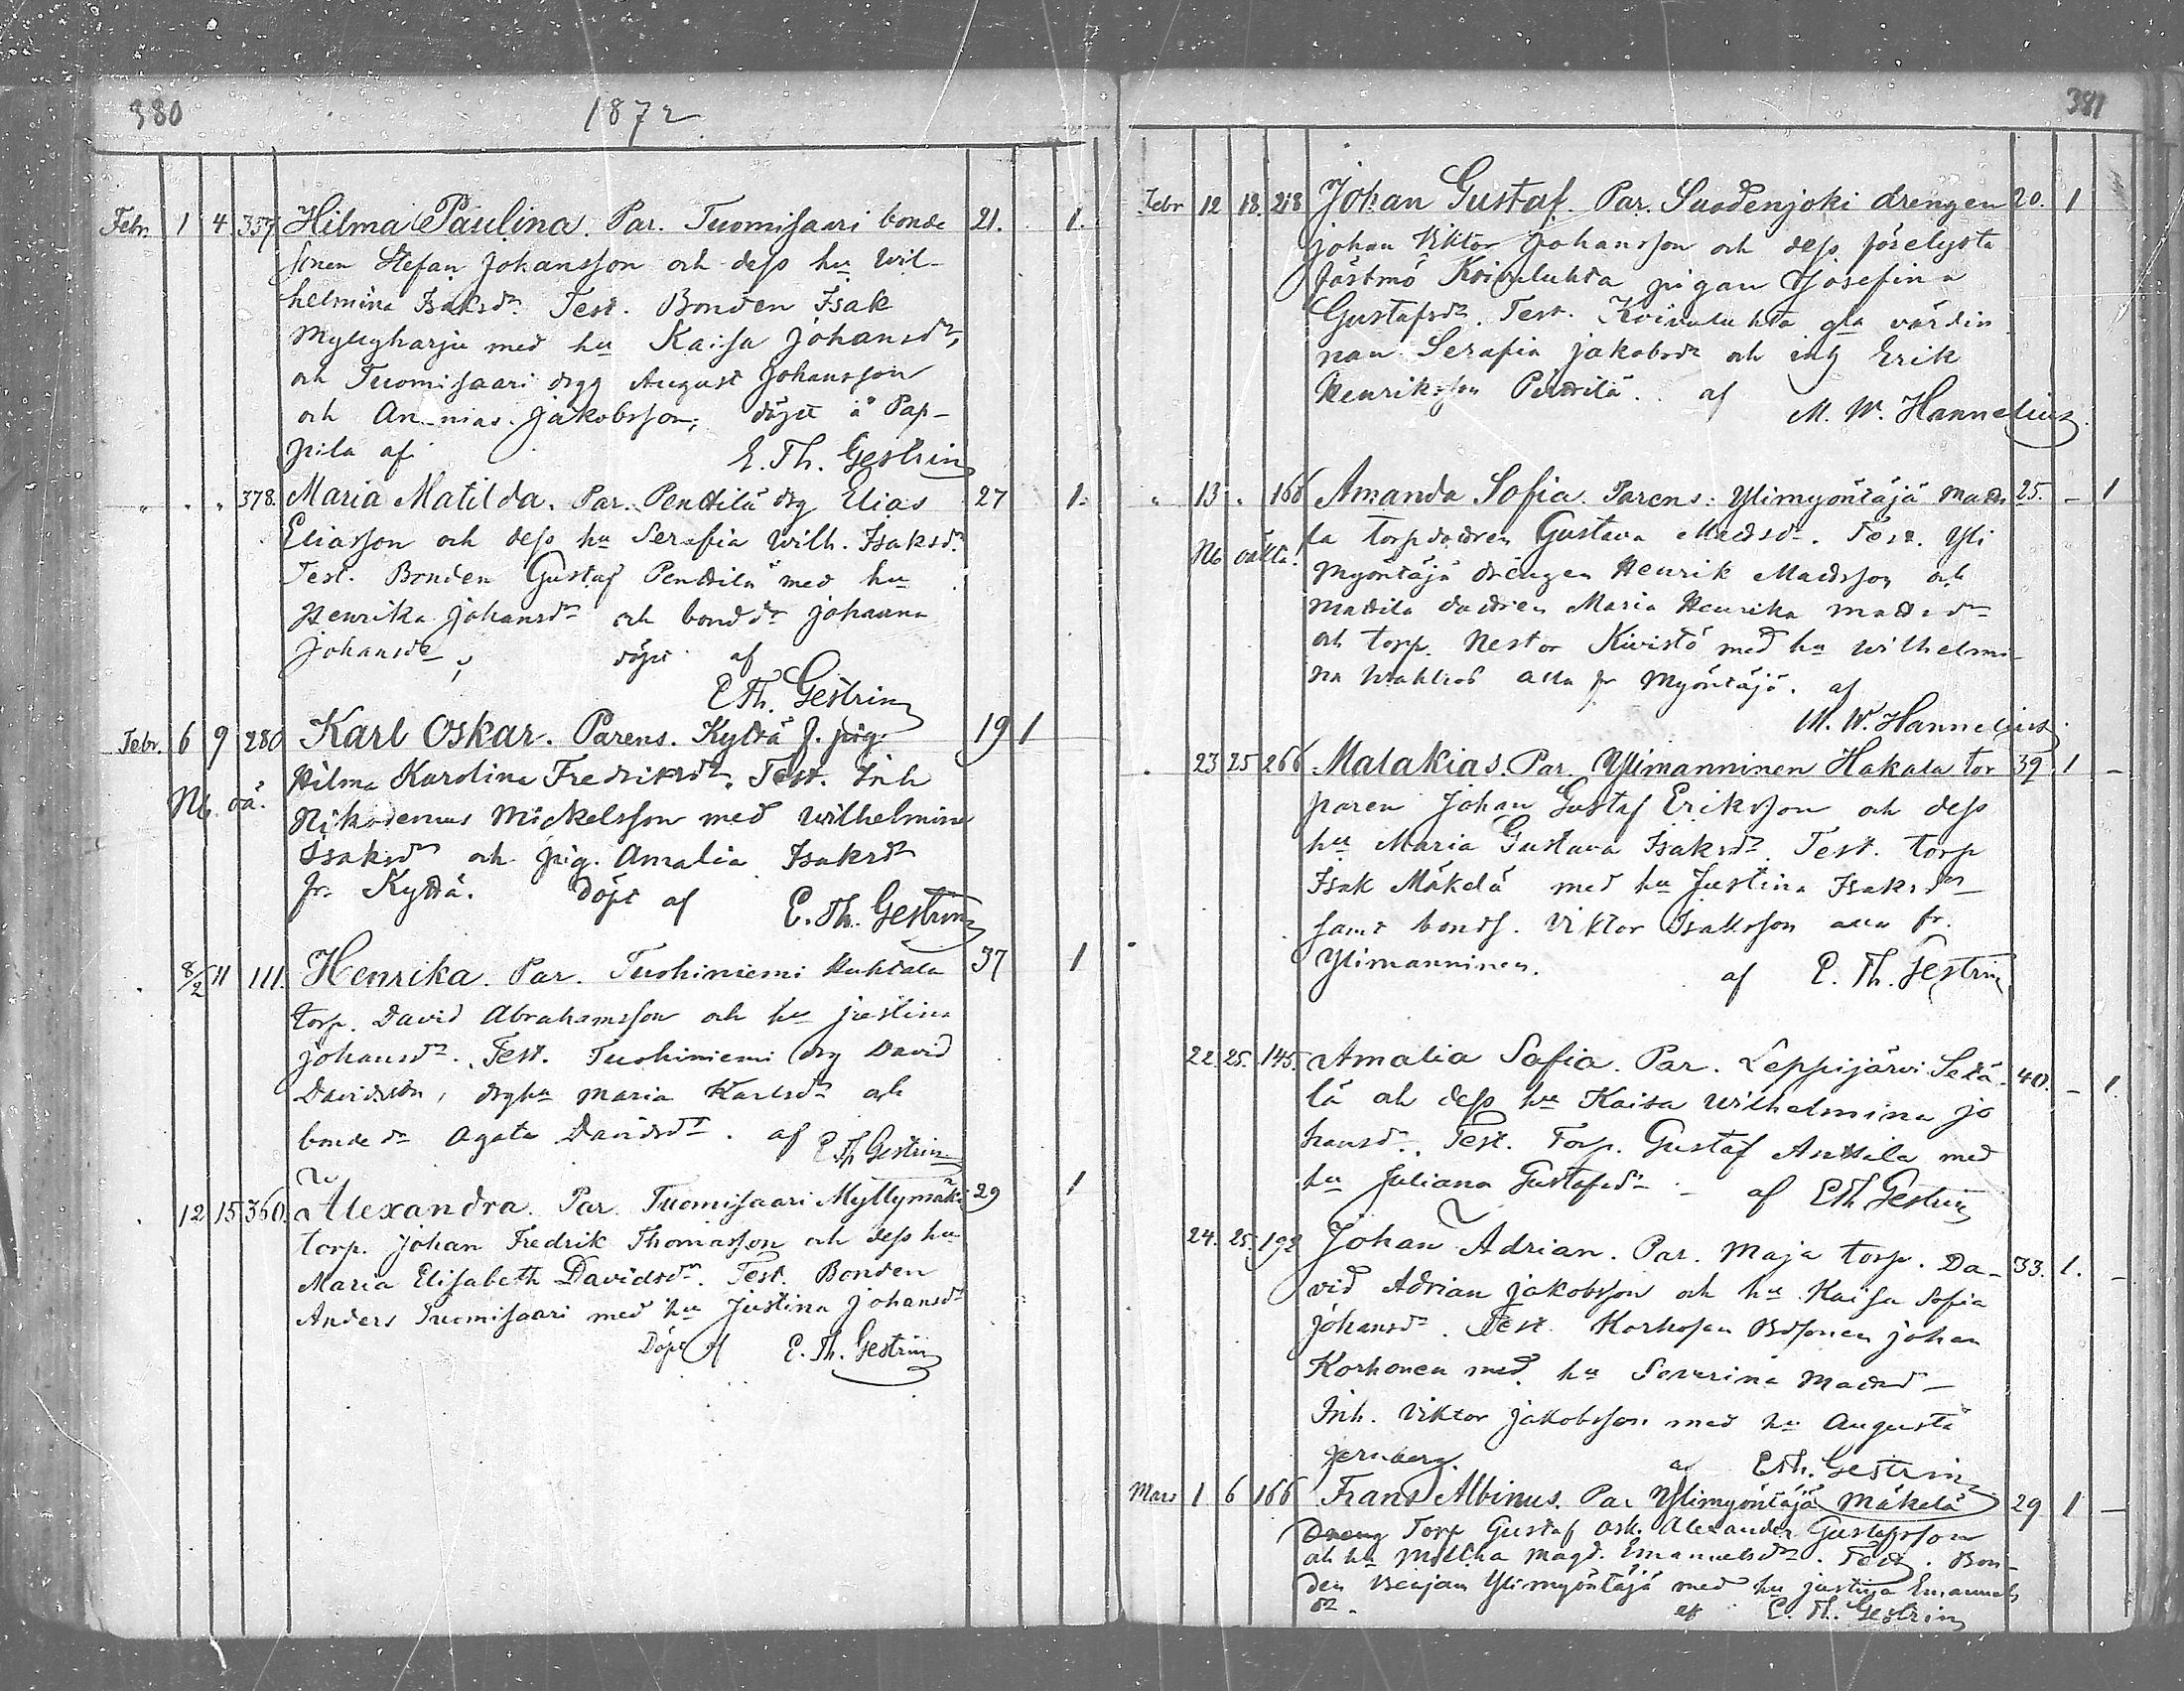 380
1872
Febr. 1 4 357 Hilma Paulina. Par. Tuomisaari bonde 21. 1.
sonen Stefan Johansson och dess hu Wil-
helmina Isaksdr. Test. Bonden Isak
Myllyharju med hu Kaisa Johansdr,
och Tuomisaari drgg August Johansson
och Jakobsson, döpt å Pap-
pila af E. Th. Gestrin
" " " 378. Maria Matilda. Par. Penttilä drg Elias 27 1.
Eliasson och dess hu Serafia Wilh. Isaksdr.
Test. Bonden Gustaf Penttilä med hu
Henrika Johansdr och bondedr Johanna
Johansdr, döpt af
E Th. Gestrin
Febr. 6 9 280 Karl Oskar. Parens. Kyttä J. pig. 19 1
Nb oä. Hilma Karolina Fredriksdr. Test. Inh
Nikodemus Mickelsson med Wilhelmina
Isaksdr och pig. Amalia Isaksdr
fr. Kyttä. Döpt af E. Th. Gestrin
" 8/2 11 111. Henrika. Par. Tuohiniemi Huhtala 37 1
torp. David Abrahamsson och hu Justina
Johansdr. Test. Tuohiniemi drg David
Davidsson, drghu Maria Karlsdr och
bondedr Agata Davidsdr. af E Th Gestrin
" 12 15 360. Alexandra. Par. Tuomisaari Myllymäki 29 1
torp. Johan Fredrik Thomasson och dess hu
Maria Elisabeth Davidsdr. Test. Bonden
Anders Tuomisaari med hu Justina Johansdr
Döpt af E. Th. Gestrin
381
Febr 12 18. 218 Johan Gustaf. Par. Suodenjoki drengen 20. 1
Johan Viktor Johansson och dess förelysta
fästmö Koivuluhta pigan Josefina
Gustafsdr. Test. Koivuluhta gla värdin
nan Serafia Jakobsdr och inh Erik
Henriksson Penttilä. af M. W. Hannelius.
" 13 " 166 Amanda Sofia. Parens: Ylimyöntäjä Matti 25. - 1
Nb oäkta! la torpdottren Gustava Mattsdr. Test. Yli
myöntäjä drengen Henrik Mattsson och
Mattila dottren Maria Henrika Mattsdr
och torp. Nestor Kivistö med hu Wilhelmi-
na alla fr Myöntäjä. af
M. W. Hannelius.
" 23 25 266 Malakias. Par. Ylimanninen Hakala tor 39. 1 -
paren Johan Gustaf Eriksson och dess
hu Maria Gustava Isaksdr. Test. torp
Isak Mäkelä med hu Justina Isaksdr
samt bonds. Viktor Isaksson alla fr.
Ylimanninen. af E. Th. Gestrin
22. 25. 145. Amalia Sofia. Par. Leppijärvi Setä- 40. - 1.
lä och dess hu Kaisa Wilhelmina Jo
hansdr. Test. Torp. Gustaf Anttila med
hu Juliana Gustafsdr - af E Th Gestrin
24. 25. 192 Johan Adrian. Par. Maja torp. Da- 33. 1. -
vid Adrian Jakobsson och hu Kaisa Sofia
Johansdr. Test. Korhosen Bdsonen Johan
Korhonen med hu Severina Mattsd -
Inh. Viktor Jakobsson med hu Augusta
Jernberg. af E Th. Gestrin
Mars 1 6 166 Frans Albinus. Par Ylimyöntäjä Mäkelä 29 1 -
Dreng Torp Gustaf Osk. Alexander Gustafsson
och hu Milka Magd. Emanuelsdr. Test. Bon-
den Benjam Ylimyöntäjä med hu Justina Emanuels
dr. af E. Th. Gestrin